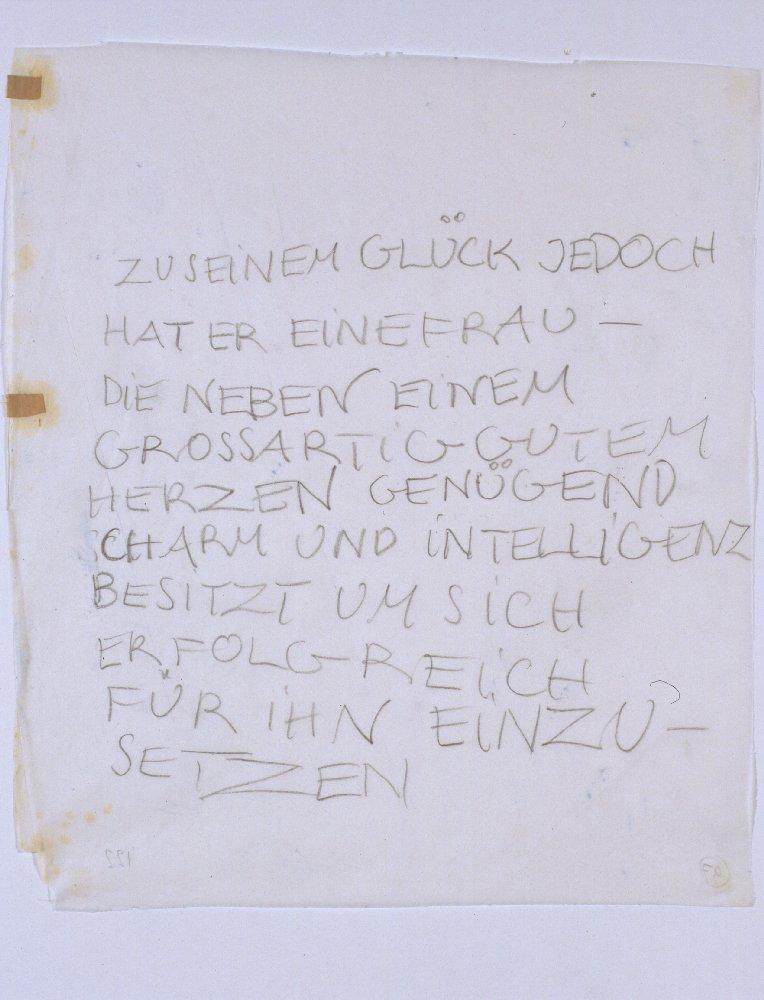 ZU SEINEM GLÜCK JEDOCH
HAT ER EINE FRAU —
DIE NEBEN EINEM
GROSSARTIG GUTEM
HERZEN GENÜGEND
CHARM UND INTELLIGENZ
BESITZT UM SICH
ERFOLG-REICH
FÜR IHN EINZU-
SETZEN
122